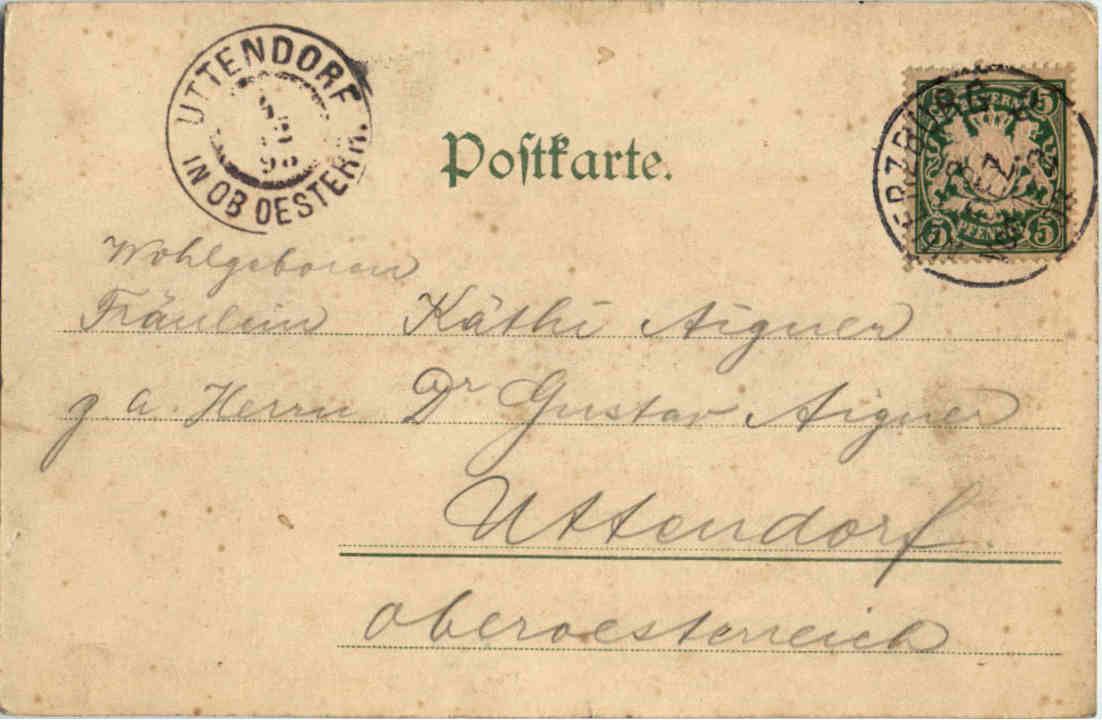 UTTENDORF
IN OB OESTERR.
Postkarte.
BAYERN
5 5
5 PFENNIG 5
Wohlgeboren
Fräulein Käthi Aigner
g a. Herrn Dr Gustav Aigner
Uttendorf.
Oberoesterreich